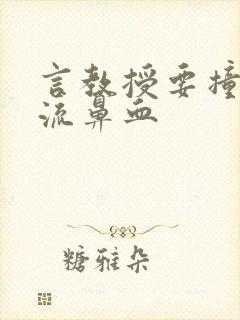 言教授要撞
流鼻血
糖雅朵